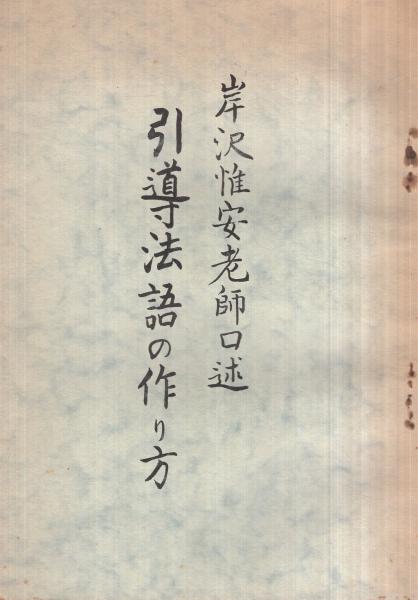 岸沢惟安老師口述
引導法語の作り方